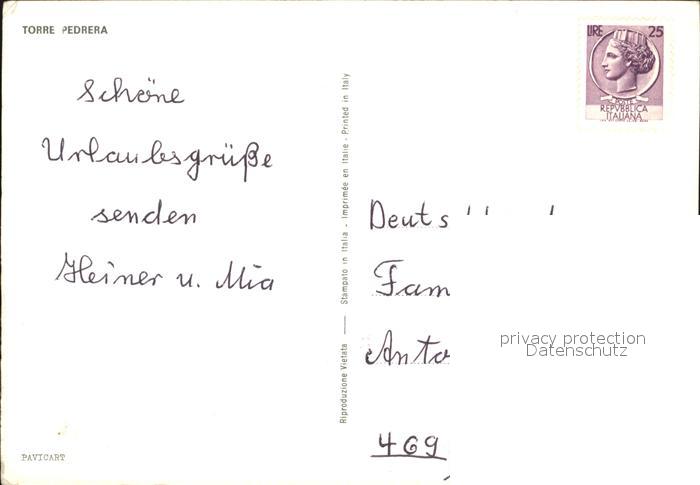 TORRE PEDRERA
LIRE 25
POSTE
REPVBBLICA
ITALIANA
Schöne
Urlaubsgrüße
senden
Heiner u. Mia
Riproduzione Vietata — Stampato in Italia - Imprimée en Italie - Printed in Italy
Deuts
Fam
Anto
469
privacy protection
Datenschutz
PAVICART